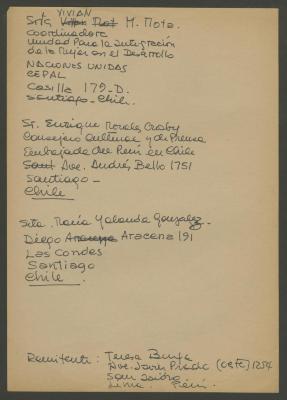 VIVIAN
Srta M. Mota.
Coordinadora
Unidad Para la Integración
de la Mujer en el Desarrollo
NACIONES UNIDAS
CEPAL
Casilla 179-D.
Santiago - Chile.
Sr. Enrique
Consejero Cultural y de Prensa
Embajada del Perú en Chile
Ave. Andrés Bello 1751
Santiago -
Chile
Srta. María Yolanda Gonzalez
Diego Aracena 191
Las Condes
Santiago
Chile.
Remitente: Teresa
Ave. Javier Prado (Oeste) 1254
San Isidro
Lima. Perú.